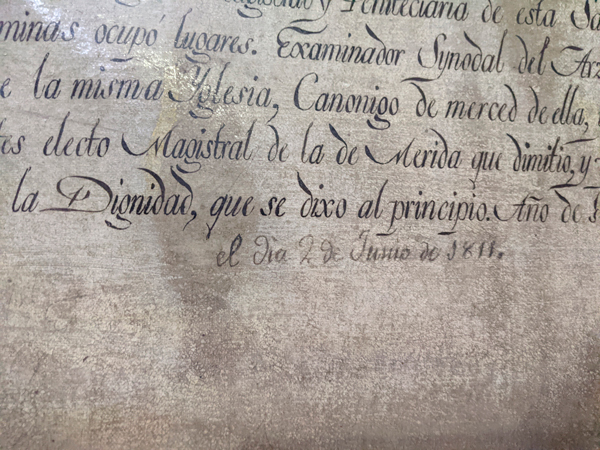 y Peniteciaria de esta
minas ocupó lugares. Examinador Synodal del Arz
e la misma Yglesia, Canonigo de merced de ella,
electo Magistral de la de Merida que dimitio, y
la Dignidad, que se dixo al principio. Año de
el dia 2 de Junio de 1811.